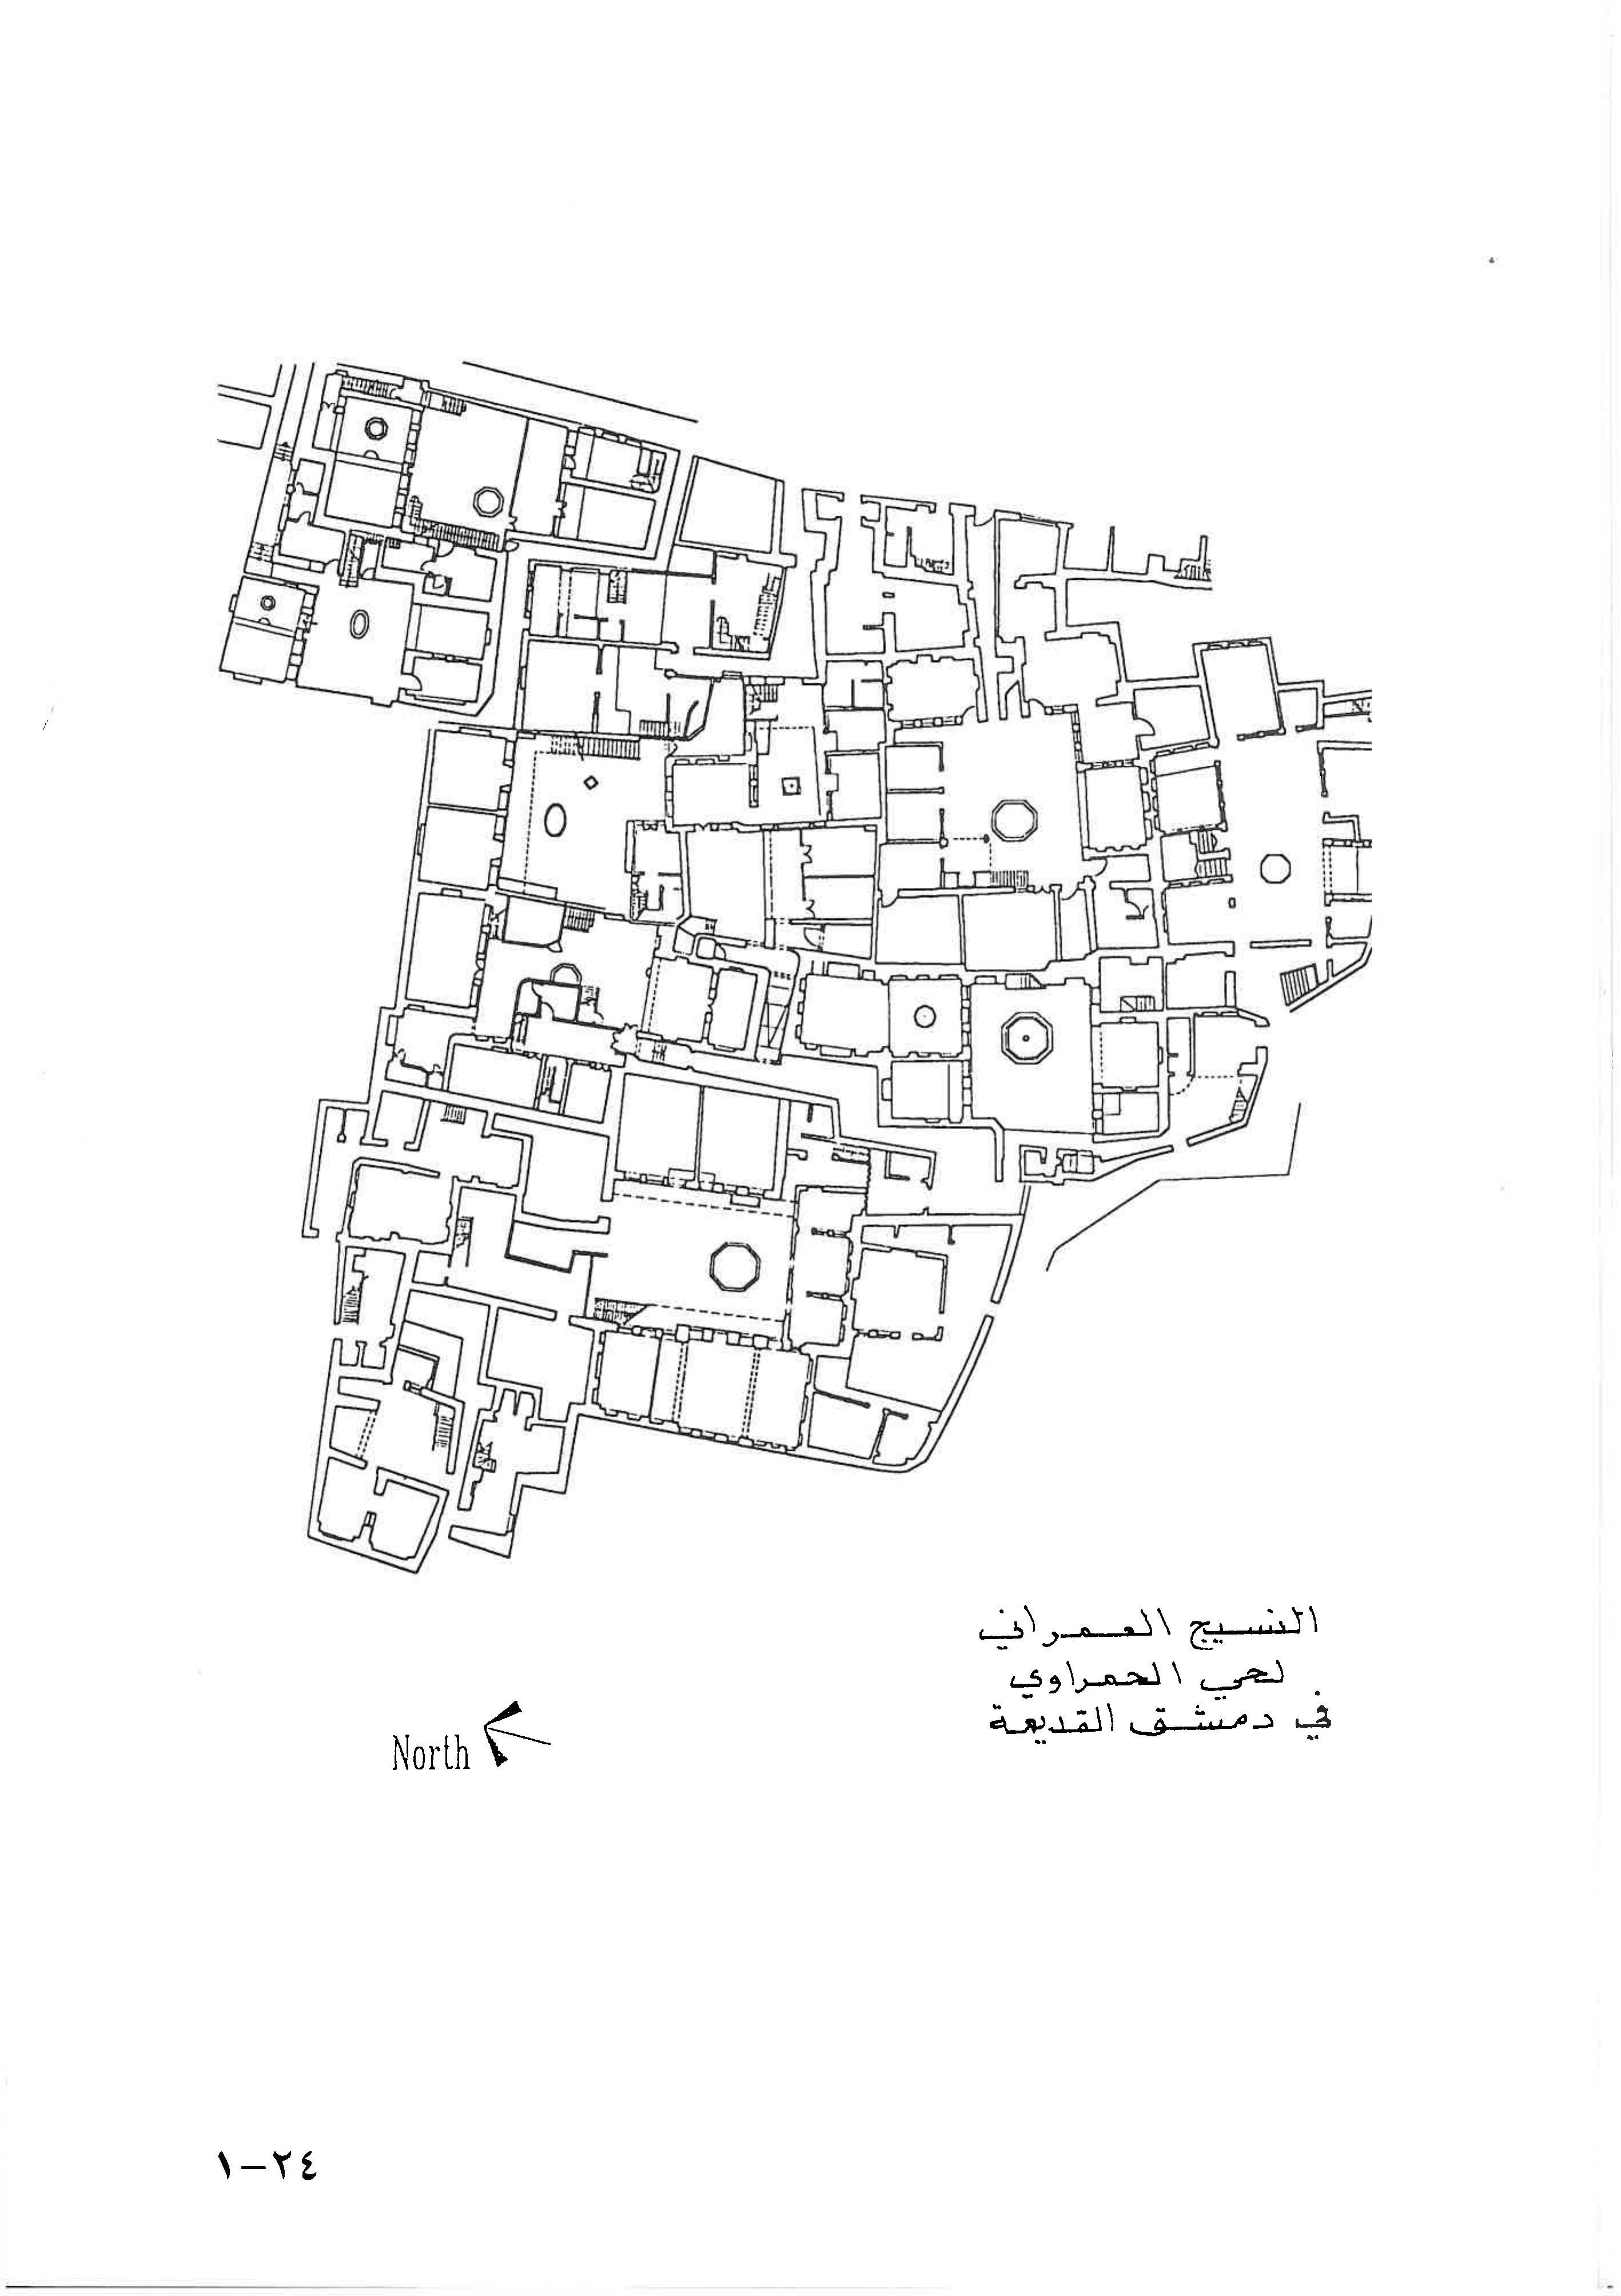 النسيج العمراني
لحي الحمراوي
في دمشق القديمة
North
١-٢٤